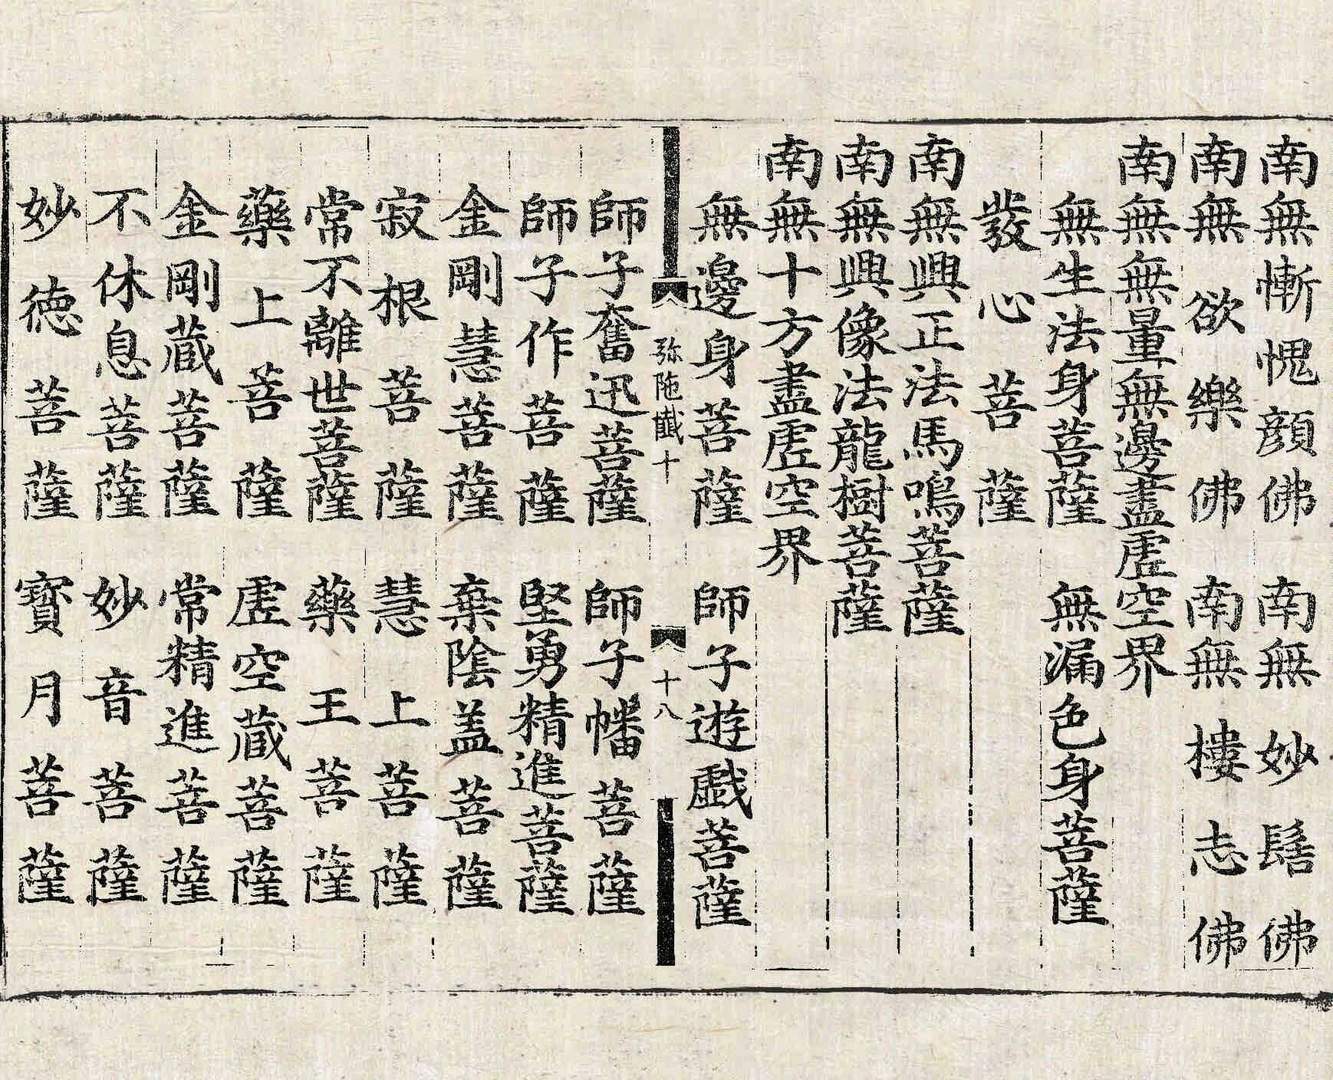 南無慚愧顔佛 南無妙髻佛
南無欲樂佛 南無樓志佛
南無無量無邊盡虛空界
無生法身菩薩 無漏色身菩薩
發心菩薩
南無興正法馬鳴菩薩
南無興像法龍樹菩薩
南無十方盡虛空界
無邊身菩薩 師子遊戲菩薩
弥陁懺十 十八
師子奮迅菩薩 師子幡菩薩
師子作菩薩 堅勇精進菩薩
金剛慧菩薩 棄陰盖菩薩
寂根菩薩 慧上菩薩
常不離世菩薩 藥王菩薩
藥上菩薩 虛空蔵菩薩
金剛蔵菩薩 常精進菩薩
不休息菩薩 妙音菩薩
妙德菩薩 寶月菩薩